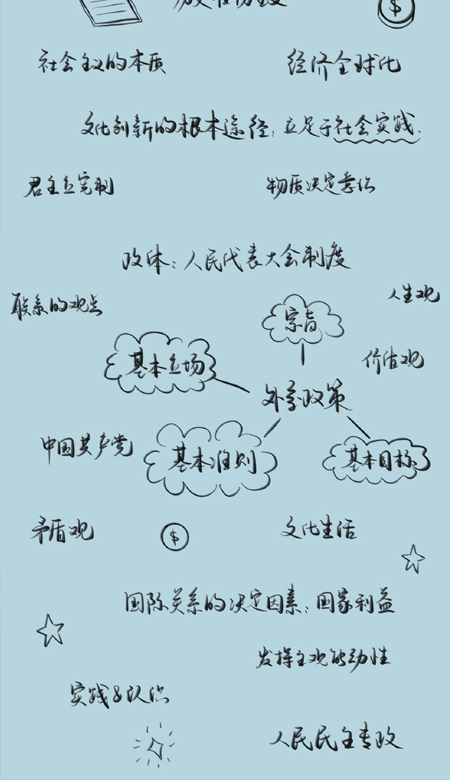 $
社会主义的本质
经济全球化
文化创新的根本途径:立足于社会实践.
君主立宪制
物质决定意识
政体:人民代表大会制度
联系的观点
人生观
宗旨
价值观
基本立场
外交政策
中国共产党
基本准则
基本目标
矛盾观
$
文化生活
国际关系的决定因素:国家利益
发挥主观能动性
实践&认识
人民民主专政